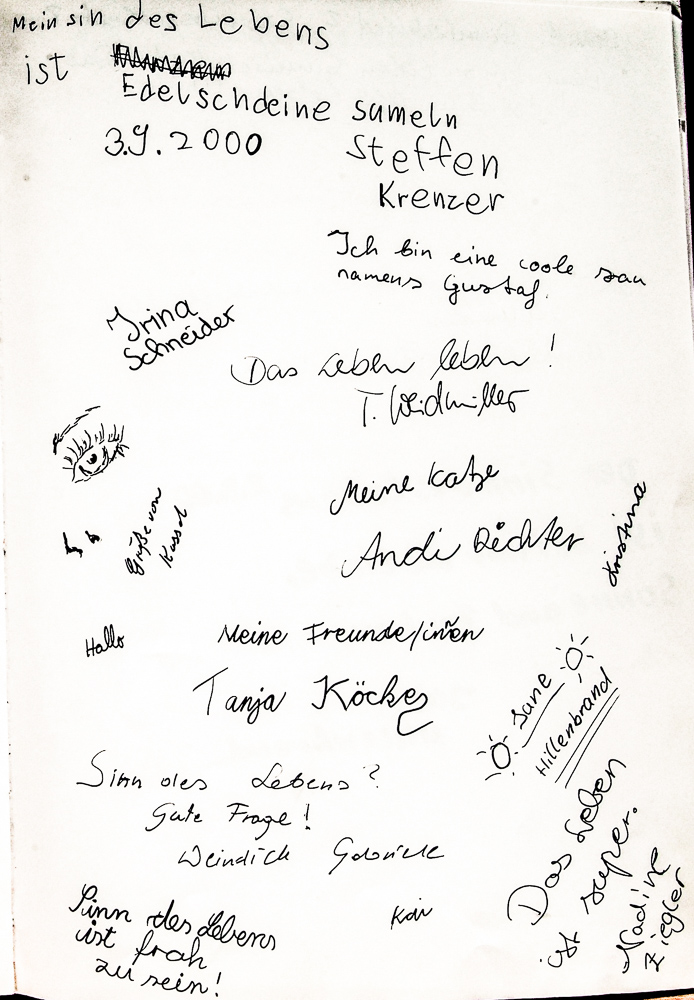 Mein sin des Lebens
ist
Edelschdeine sameln
3.9.2000 Steffen
Krenzer
Ich bin eine coole sau
namens Gustaf.
Irina
Schneider
Das Leben leben!
T. Weidmiller
Meine Katze
Andi Richter
Kristina
Grüße von
Kassel
Hallo
Meine Freunde/innen
Tanja Köcke
Jane
Hillenbrand
Sinn des Lebens?
Gute Frage!
Weindich Gabriele
Das Leben
ist super.
Nadine
Ziegler
Kai
Sinn des Lebens
ist froh
zu sein!